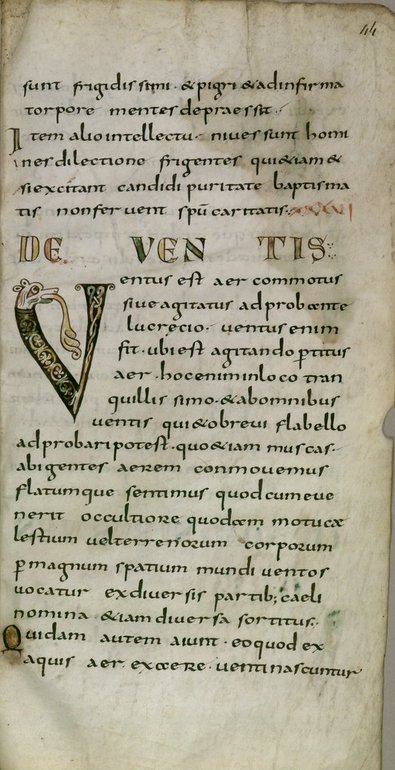 44
sunt frigidissimi · & pigri & adinfirma
torpore mentes depraessit ·
Item alio intellectu · nives sunt homi
nes dilectione frigentes qui &iam &
si excitant candidi puritate baptisma
tis non fervent spū caritatis · XXXVI
DE VENTIS
Ventus est aer commotus
sive agitatus adprobante
lucrecio · ventus enim
fit · ubi est agitando ꝑcitus
aer · hoc enim in loco tran
quillissimo · & ab omnibus
ventis qui&o brevi flabello
adprobari potest · quo &iam muscas ·
abigentes aerem conmovemus
flatumque sentimus quod cum eve
nerit occultiore quodam motu cæ
lestium vel terrenorum corporum
ꝑ magnum spatium mundi ventos
vocatur ex diversis partib; caeli
nomina &iam diversa sortitus ·
Quidam autem aiunt · eo quod ex
aquis aer exaere · venti nascuntur